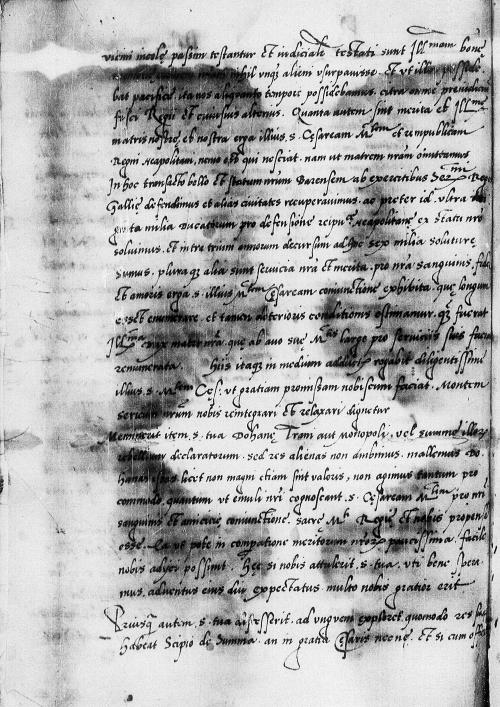 vicini incolę passim testantur Et iudicialr testati sunt Ill.mam bone
nihil unq3 alieni usurpauisse. Et ut illa posside
bat pacifice, ita nos aliquanto tempore possidebamus, citra omne preiudiciũ
fisci Regii et cuiusuis alterius. Quanta autem sint merita et Ill.me
matris nostrę et nostra erga illius. s. Cęsaream M.tem et rempublicam
Regni neapolitani, nemo est qui nesciat. nam ut matrem nrãm omittamus
In hoc transacto bello Et statum nrũm Barensem ab exercitibus
Gallię defendimus et alias ciuitates recuperauimus. ac preter id. ultra
milia Ducatorum pro defensione reipu.ę neapolitanę ex statu nrõ
soluimus. Et intra trium annorum decursum sex milia soluturi
sumus, pluraq3 alia sunt seruicia nrã et merita. pro nrã sanguinis, fidei
Et amoris erga. s. illius M.tem Cęsaream coniunctione exhibita. quę longum
esset enumerare. et tamen deterioris conditionis estimamur. q3 fuerat
Ill.ma mater nrã. quę ab auo suę M.tis largo pro seruiciis suis fuerat
remunerata. Hiis itaq3 in medium adductis rogabit diligentissime
illius. s. M.tem Ces: ut gratiam promissam nobiscum faciat. Montem
sericum nrũm nobis reintegrari Et relaxari dignetur
Meminerit item. s. tua Dohanę Trani aut Monopoli. vel summę illorũ
rebellium declaratorum. sed res alienas non ambimus. mallemus Do
hanas ipsas licet non magni etiam sint valoris, non agimus tantum pro
commodo, quantum ut emuli nrĩ cognoscant. s. Cęsaream M.tem pro nrĩ
sanguinis Et amicicię coniunctione. sacrę M.ti Regię Et nobis propensã
esse. Ea ut pote in compatione meritorum nrõrum paucissima. facile
nobis adijci possunt. Hęc si nobis attulerit. s. tua. uti bene spera
mus, aduentus eius diu expectatus. multo nobis gratior erit
Priusq3 autem. s. tua ad unguem exploret, quomodo res
habeat Scipio de Summa. an in gratia Cęsaris necne. Et si cum